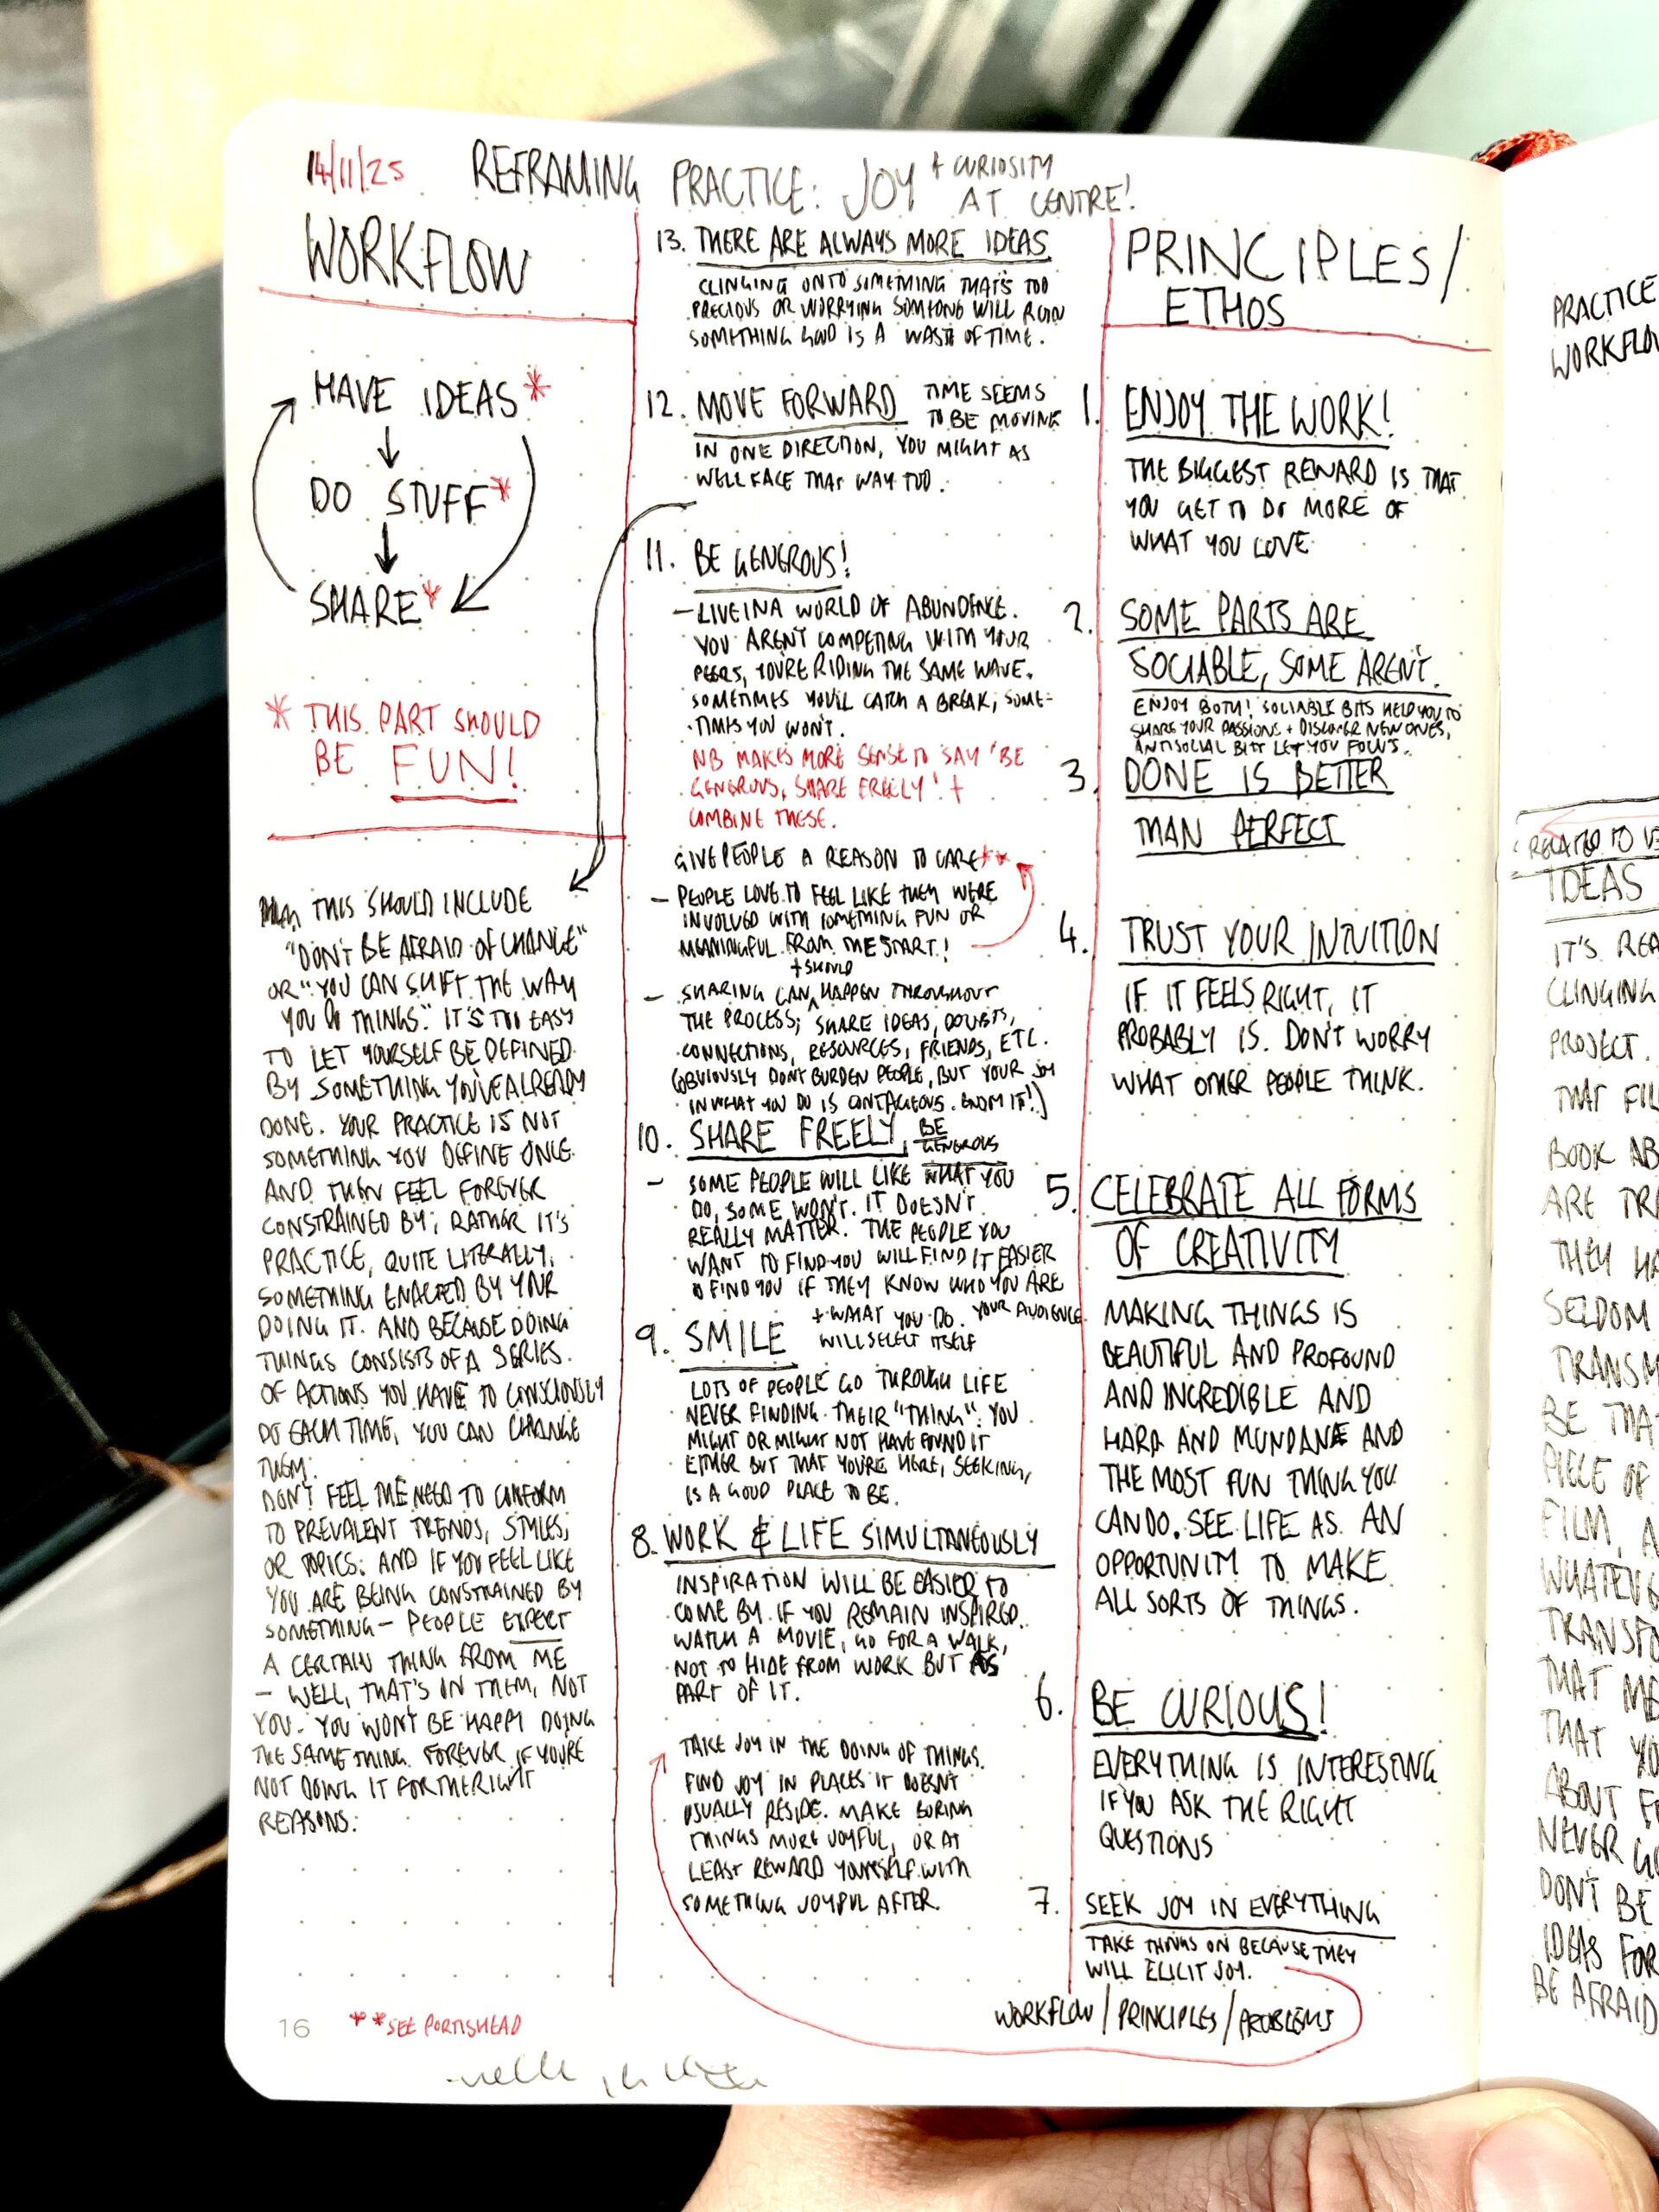 14/11/25 REFRAMING PRACTICE: JOY + CURIOSITY
AT CENTRE!
WORKFLOW
HAVE IDEAS*
DO STUFF*
SHARE*
* THIS PART SHOULD
BE FUN!
THIS SHOULD INCLUDE
"DON'T BE AFRAID OF CHANGE"
OR "YOU CAN SHIFT THE WAY
YOU DO THINGS". IT'S TOO EASY
TO LET YOURSELF BE DEFINED
BY SOMETHING YOU'VE ALREADY
DONE. YOUR PRACTICE IS NOT
SOMETHING YOU DEFINE ONCE
AND THEN FEEL FOREVER
CONSTRAINED BY; RATHER IT'S
PRACTICE, QUITE LITERALLY,
SOMETHING ENACTED BY YOUR
DOING IT. AND BECAUSE DOING
THINGS CONSISTS OF A SERIES
OF ACTIONS YOU HAVE TO CONSCIOUSLY
DO EACH TIME, YOU CAN CHANGE
THEM.
DON'T FEEL THE NEED TO CONFORM
TO PREVALENT TRENDS, STYLES,
OR TOPICS: AND IF YOU FEEL LIKE
YOU ARE BEING CONSTRAINED BY
SOMETHING – PEOPLE EXPECT
A CERTAIN THING FROM ME
– WELL, THAT'S ON THEM, NOT
YOU. YOU WON'T BE HAPPY DOING
THE SAME THING FOREVER IF YOU'RE
NOT DOING IT FOR THE RIGHT
REASONS.
16 **SEE PORTISHEAD
13. THERE ARE ALWAYS MORE IDEAS
CLINGING ONTO SOMETHING THAT'S TOO
PRECIOUS OR WORRYING SOMEONE WILL RUIN
SOMETHING GOOD IS A WASTE OF TIME.
12. MOVE FORWARD TIME SEEMS
TO BE MOVING
IN ONE DIRECTION, YOU MIGHT AS
WELL FACE THAT WAY TOO.
11. BE GENEROUS!
– LIVE IN A WORLD OF ABUNDENCE.
YOU AREN'T COMPETING WITH YOUR
PEERS, YOU'RE RIDING THE SAME WAVE.
SOMETIMES YOU'LL CATCH A BREAK, SOME-
TIMES YOU WON'T.
NB MAKES MORE SENSE TO SAY 'BE
GENEROUS, SHARE FREELY' +
COMBINE THESE.
GIVE PEOPLE A REASON TO CARE**
– PEOPLE LOVE TO FEEL LIKE THEY WERE
INVOLVED WITH SOMETHING FUN OR
MEANINGFUL FROM THE START!
+ SHOULD
– SHARING CAN HAPPEN THROUGHOUT
THE PROCESS; SHARE IDEAS, DOUBTS,
CONNECTIONS, RESOURCES, FRIENDS, ETC.
(OBVIOUSLY DON'T BURDEN PEOPLE, BUT YOUR JOY
IN WHAT YOU DO IS CONTAGEOUS. !)
10. SHARE FREELY, BE
GENEROUS
– SOME PEOPLE WILL LIKE WHAT YOU
DO, SOME WON'T. IT DOESN'T
REALLY MATTER. THE PEOPLE YOU
WANT TO FIND YOU WILL FIND IT EASIER
TO FIND YOU IF THEY KNOW WHO YOU ARE
+ WHAT YOU DO. YOUR AUDIENCE
WILL SELECT ITSELF
9. SMILE
LOTS OF PEOPLE GO THROUGH LIFE
NEVER FINDING THEIR "THING". YOU
MIGHT OR MIGHT NOT HAVE FOUND IT
EITHER BUT THAT YOU'RE HERE, SEEKING,
IS A GOOD PLACE TO BE.
8. WORK & LIFE SIMULTANEOUSLY
INSPIRATION WILL BE EASIER TO
COME BY IF YOU REMAIN INSPIRED.
WATCH A MOVIE, GO FOR A WALK,
NOT TO HIDE FROM WORK BUT AS
PART OF IT.
TAKE JOY IN THE DOING OF THINGS.
FIND JOY IN PLACES IT DOESN'T
USUALLY RESIDE. MAKE BORING
THINGS MORE JOYFUL, OR AT
LEAST REWARD YOURSELF WITH
SOMETHING JOYFUL AFTER.
PRINCIPLES/
ETHOS
1. ENJOY THE WORK!
THE BIGGEST REWARD IS THAT
YOU GET TO DO MORE OF
WHAT YOU LOVE
2. SOME PARTS ARE
SOCIABLE, SOME AREN'T.
ENJOY BOTH! SOCIABLE BITS HELP YOU TO
SHARE YOUR PASSIONS + DISCOVER NEW ONES,
ANTISOCIAL BITS LET YOU FOCUS.
3. DONE IS BETTER
THAN PERFECT
4. TRUST YOUR INTUITION
IF IT FEELS RIGHT, IT
PROBABLY IS. DON'T WORRY
WHAT OTHER PEOPLE THINK.
5. CELEBRATE ALL FORMS
OF CREATIVITY
MAKING THINGS IS
BEAUTIFUL AND PROFOUND
AND INCREDIBLE AND
HARD AND MUNDANE AND
THE MOST FUN THING YOU
CAN DO. SEE LIFE AS AN
OPPORTUNITY TO MAKE
ALL SORTS OF THINGS.
6. BE CURIOUS!
EVERYTHING IS INTERESTING
IF YOU ASK THE RIGHT
QUESTIONS
7. SEEK JOY IN EVERYTHING
TAKE THINGS ON BECAUSE THEY
WILL ELICIT JOY.
WORKFLOW/PRINCIPLES/PROBLEMS
PRACTICE
RELATED TO
IDEAS
IT'S
CLINGING
PROJECT.
THAT
BOOK
ARE
THEY
SELDOM
BE
PIECE OF
FILM,
THAT
THAT
ABOUT
NEVER
DON'T BE
IDEAS FOR
BE AFRAID